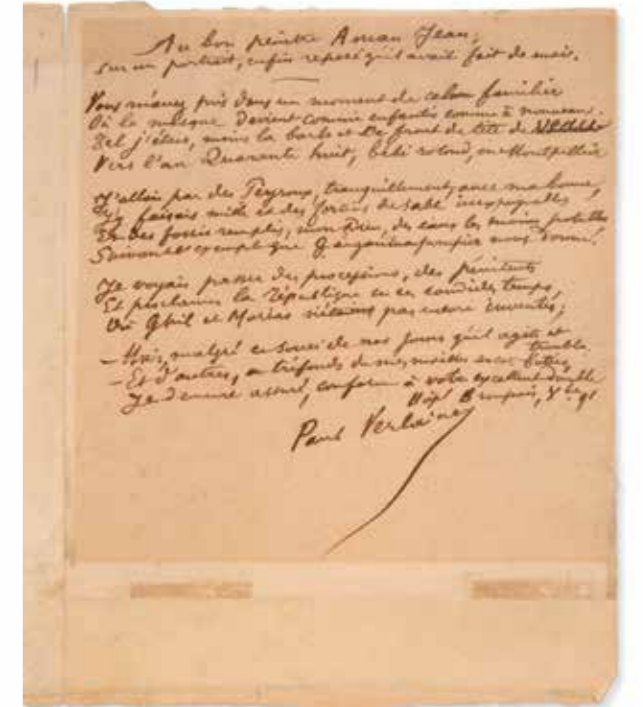 Au bon peintre Aman Jean,
sur un portrait, enfin reposé qu'il avait fait de moi.
Vous m'avez pris dans un moment de calme familier
Où le masque devient comme enfantin comme à nouveau.
Tel j'étais, moins la barbe et ce front de tête de
Vers l'an Quarante huit, bébé rotond, en Montpellier
J'allais par des Peyroux, tranquillement, avec ma bonne,
J'y faisais mille et des fortins de sable inexpugnables
Et des fossés remplis, mon Dieu, des eaux les moins potables
Suivant l'exemple que Gargantua pompier nous donne.
Je voyais passer des processions, des pénitents
Et proclamer la République en ces candides temps,
Où Ghil et Moréas n'étaient pas encore inventés;
– Mais, malgré ce souci de nos jours qu'il agite et trouble
– Et d'autres, au tréfonds de mes moelles
Je demeure assuré, conforme à votre excellent double
Hôpl Broussais, 91
Paul Verlaine